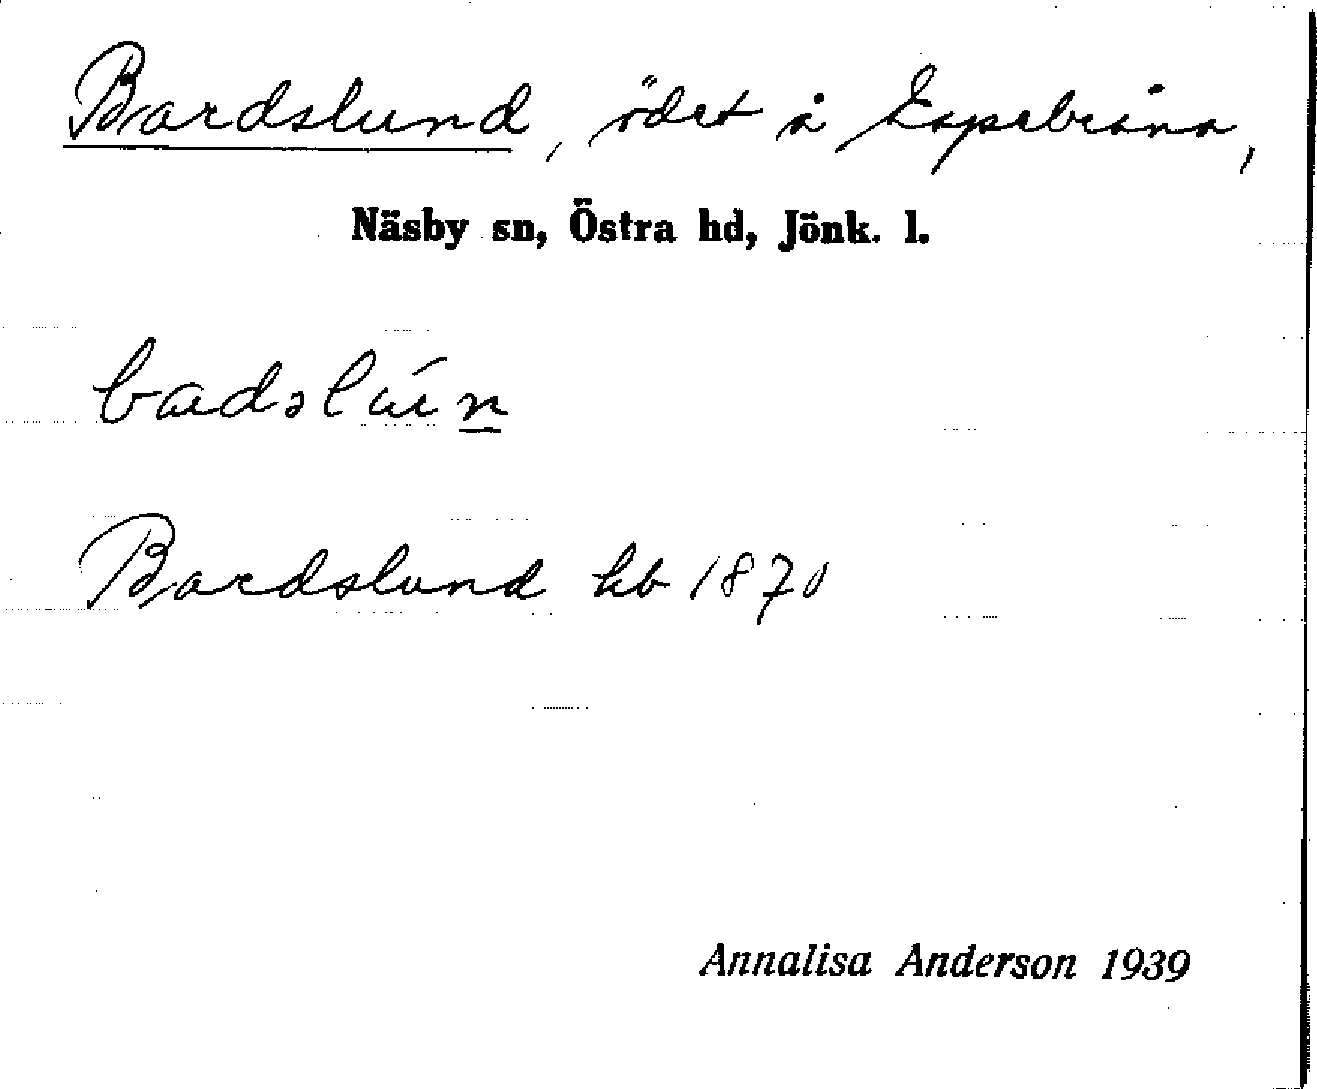 Bardslund, ödet å Espebråna,
Näsby sn, Östra hd, Jönk. l.
Bardslund hb 1870
Annalisa Anderson 1939